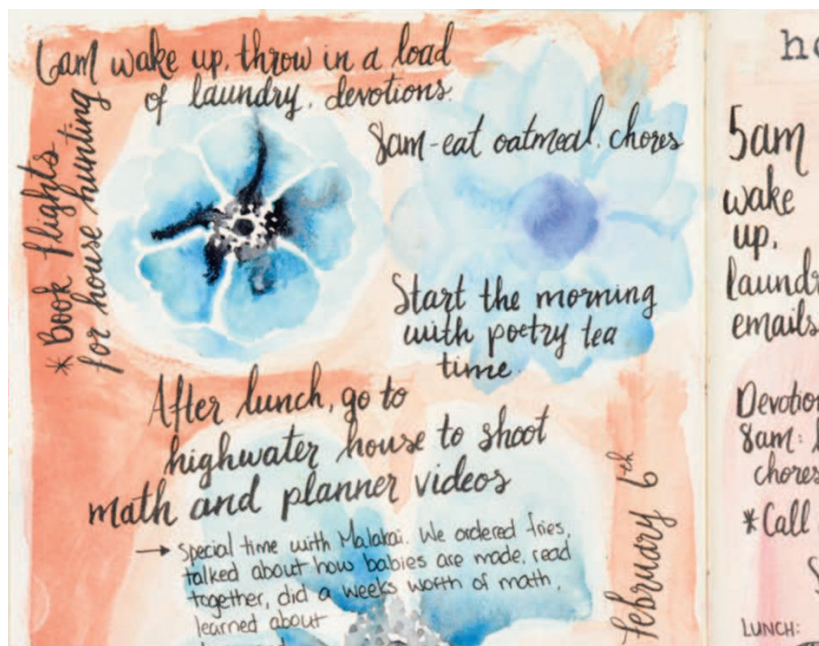 6am wake up, throw in a load
of laundry, devotions.
* Book flights
for house hunting
8am-eat oatmeal, chores
Start the morning
with poetry tea
time.
After lunch, go to
highwater house to shoot
math and planner videos
→ Special time with Malakai. We ordered fries,
talked about how babies are made, read
together, did a weeks worth of math,
learned about
February 6th
5am
wake
up,
emails
8am:
chores
*Call
LUNCH: